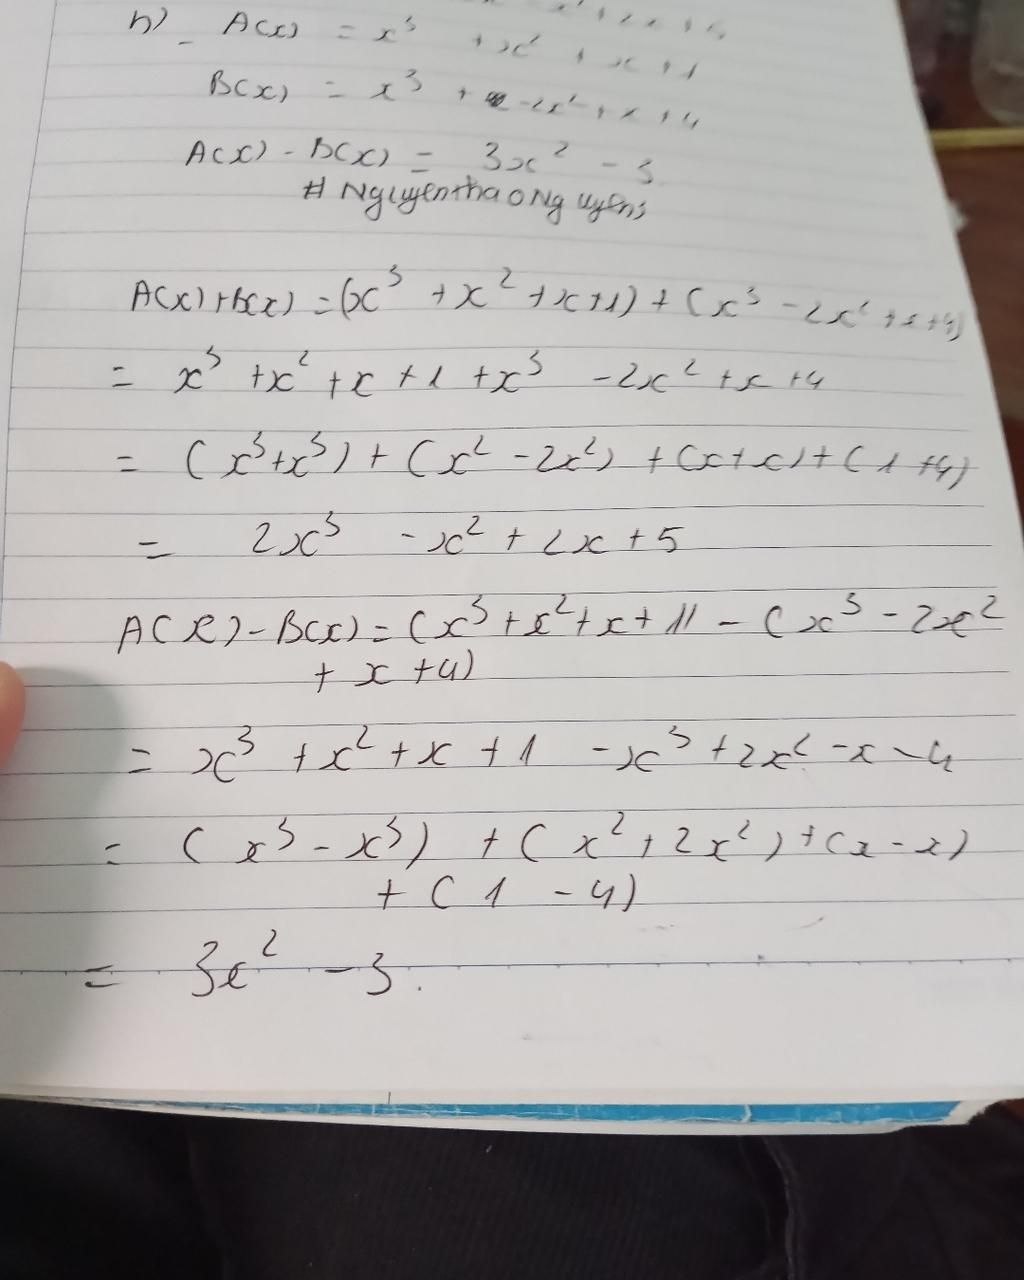 x² + 2x + 5
b) _ A(x) = x³ + x² + x + 1
B(x) = x³ + -2x² + x + 4
A(x) - B(x) = 3x² - 3
# NguyenthaoNguyens
A(x)+B(x) = (x³ + x² + x + 1) + (x³ - 2x² + x + 4)
= x³ + x² + x + 1 + x³ - 2x² + x + 4
= (x³ + x³) + (x² - 2x²) + (x + x) + (1 + 4)
= 2x³ - x² + 2x + 5
A(x) - B(x) = (x³ + x² + x + 1) - (x³ - 2x²
+ x + 4)
= x³ + x² + x + 1 - x³ + 2x² - x - 4
= (x³ - x³) + (x² + 2x²) + (x - x)
+ (1 - 4)
= 3x² - 3.